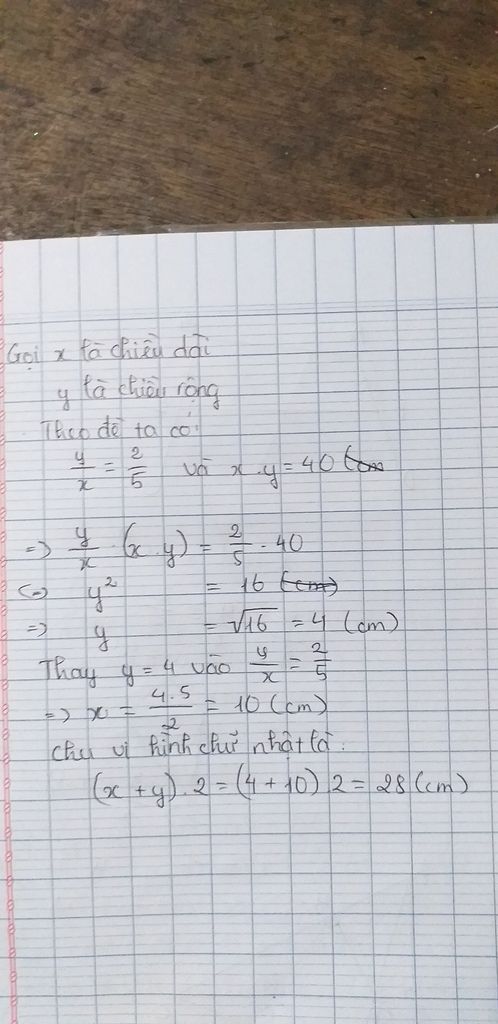 Gọi x là chiều dài
y là chiều rộng
Theo đề ta có:
y/x = 2/5 và x.y = 40 (cm
=> y/x . (x.y) = 2/5 . 40
<=> y² = 16 (cm)
=> y = √16 = 4 (cm)
Thay y = 4 vào y/x = 2/5
=> x = 4.5/2 = 10 (cm)
chu vi hình chữ nhật là:
(x + y) . 2 = (4 + 10) 2 = 28 (cm)